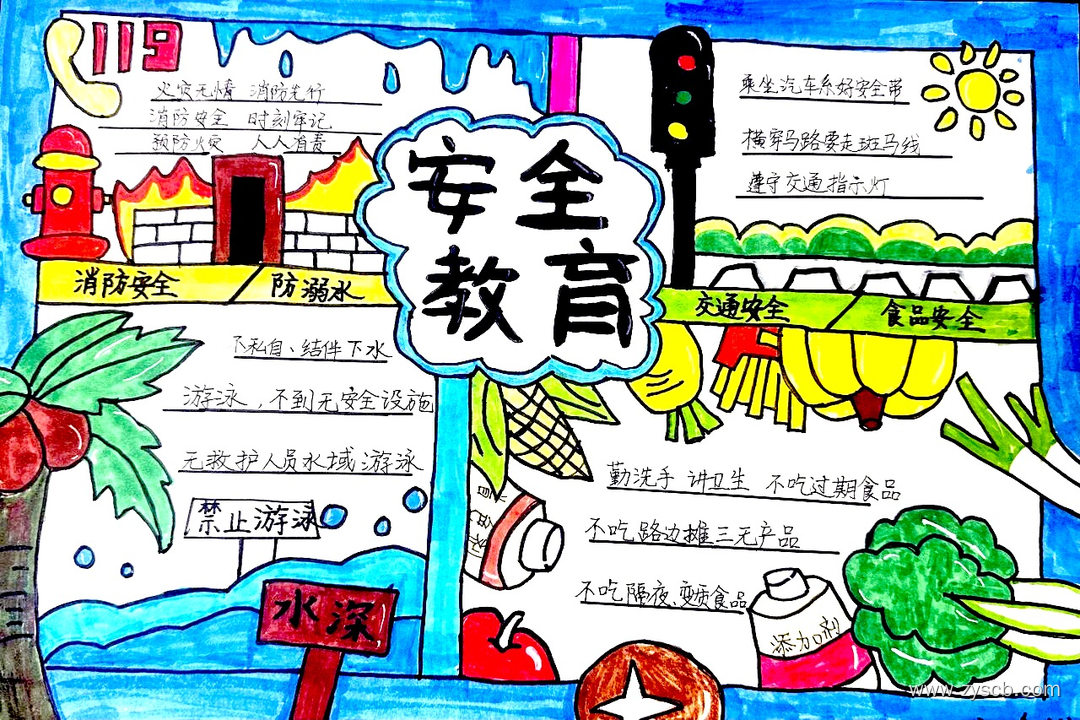 119
火灾无情 消防先行
消防安全 时刻牢记
预防火灾 人人有责
消防安全
防溺水
安全
教育
乘坐汽车系好安全带
横穿马路要走斑马线
遵守交通指示灯
交通安全
食品安全
不私自、结伴下水
游泳，不到无安全设施
无救护人员水域游泳
禁止游泳
水深
勤洗手 讲卫生 不吃过期食品
不吃路边摊三无产品
不吃隔夜、变质食品
添加剂
www.zyscb.com